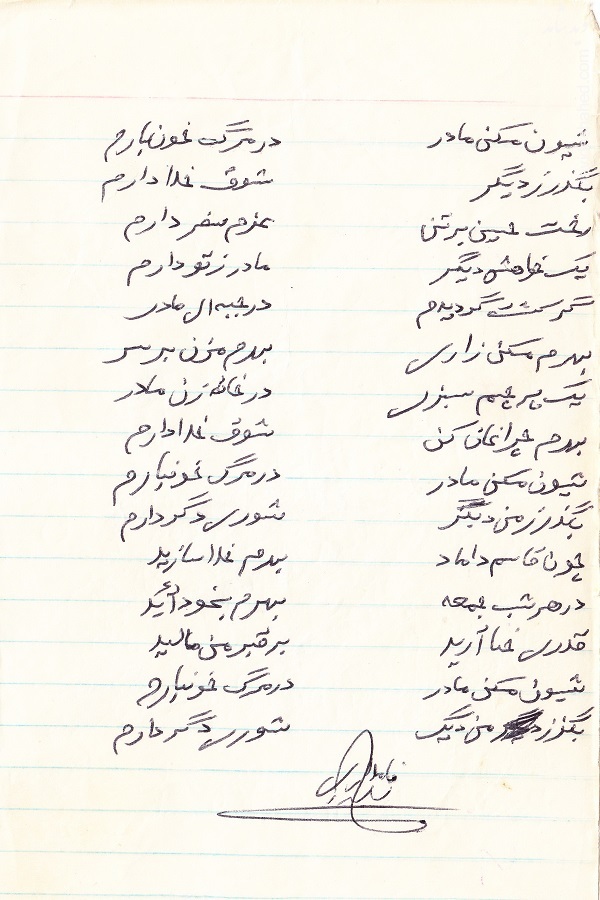 شیون مکن مادر در مرگ خونبارم
بگذر ز دیگر شوق خدا دارم
رخت حسین بر تن عزم سفر دارم
یک خواهش دیگر مادر ز تو دارم
گر کشته گردیدم در جبهه ای مادر
بهرم مکن زاری بهرم مزن بر سر
یک پرچم سبزی در خانه زن مادر
بهرم چراغان کن شوق خدا دارم
شیون مکن مادر در مرگ خونبارم
بگذر ز من دیگر شوری دگر دارم
چون قاسم داماد بهرم غذا سازید
در هر شب جمعه بهرم بخود آئید
قدری حنا آرید بر قبر من مالید
شیون مکن مادر در مرگ خونبارم
بگذر ز من دیگ شوری دگر دارم